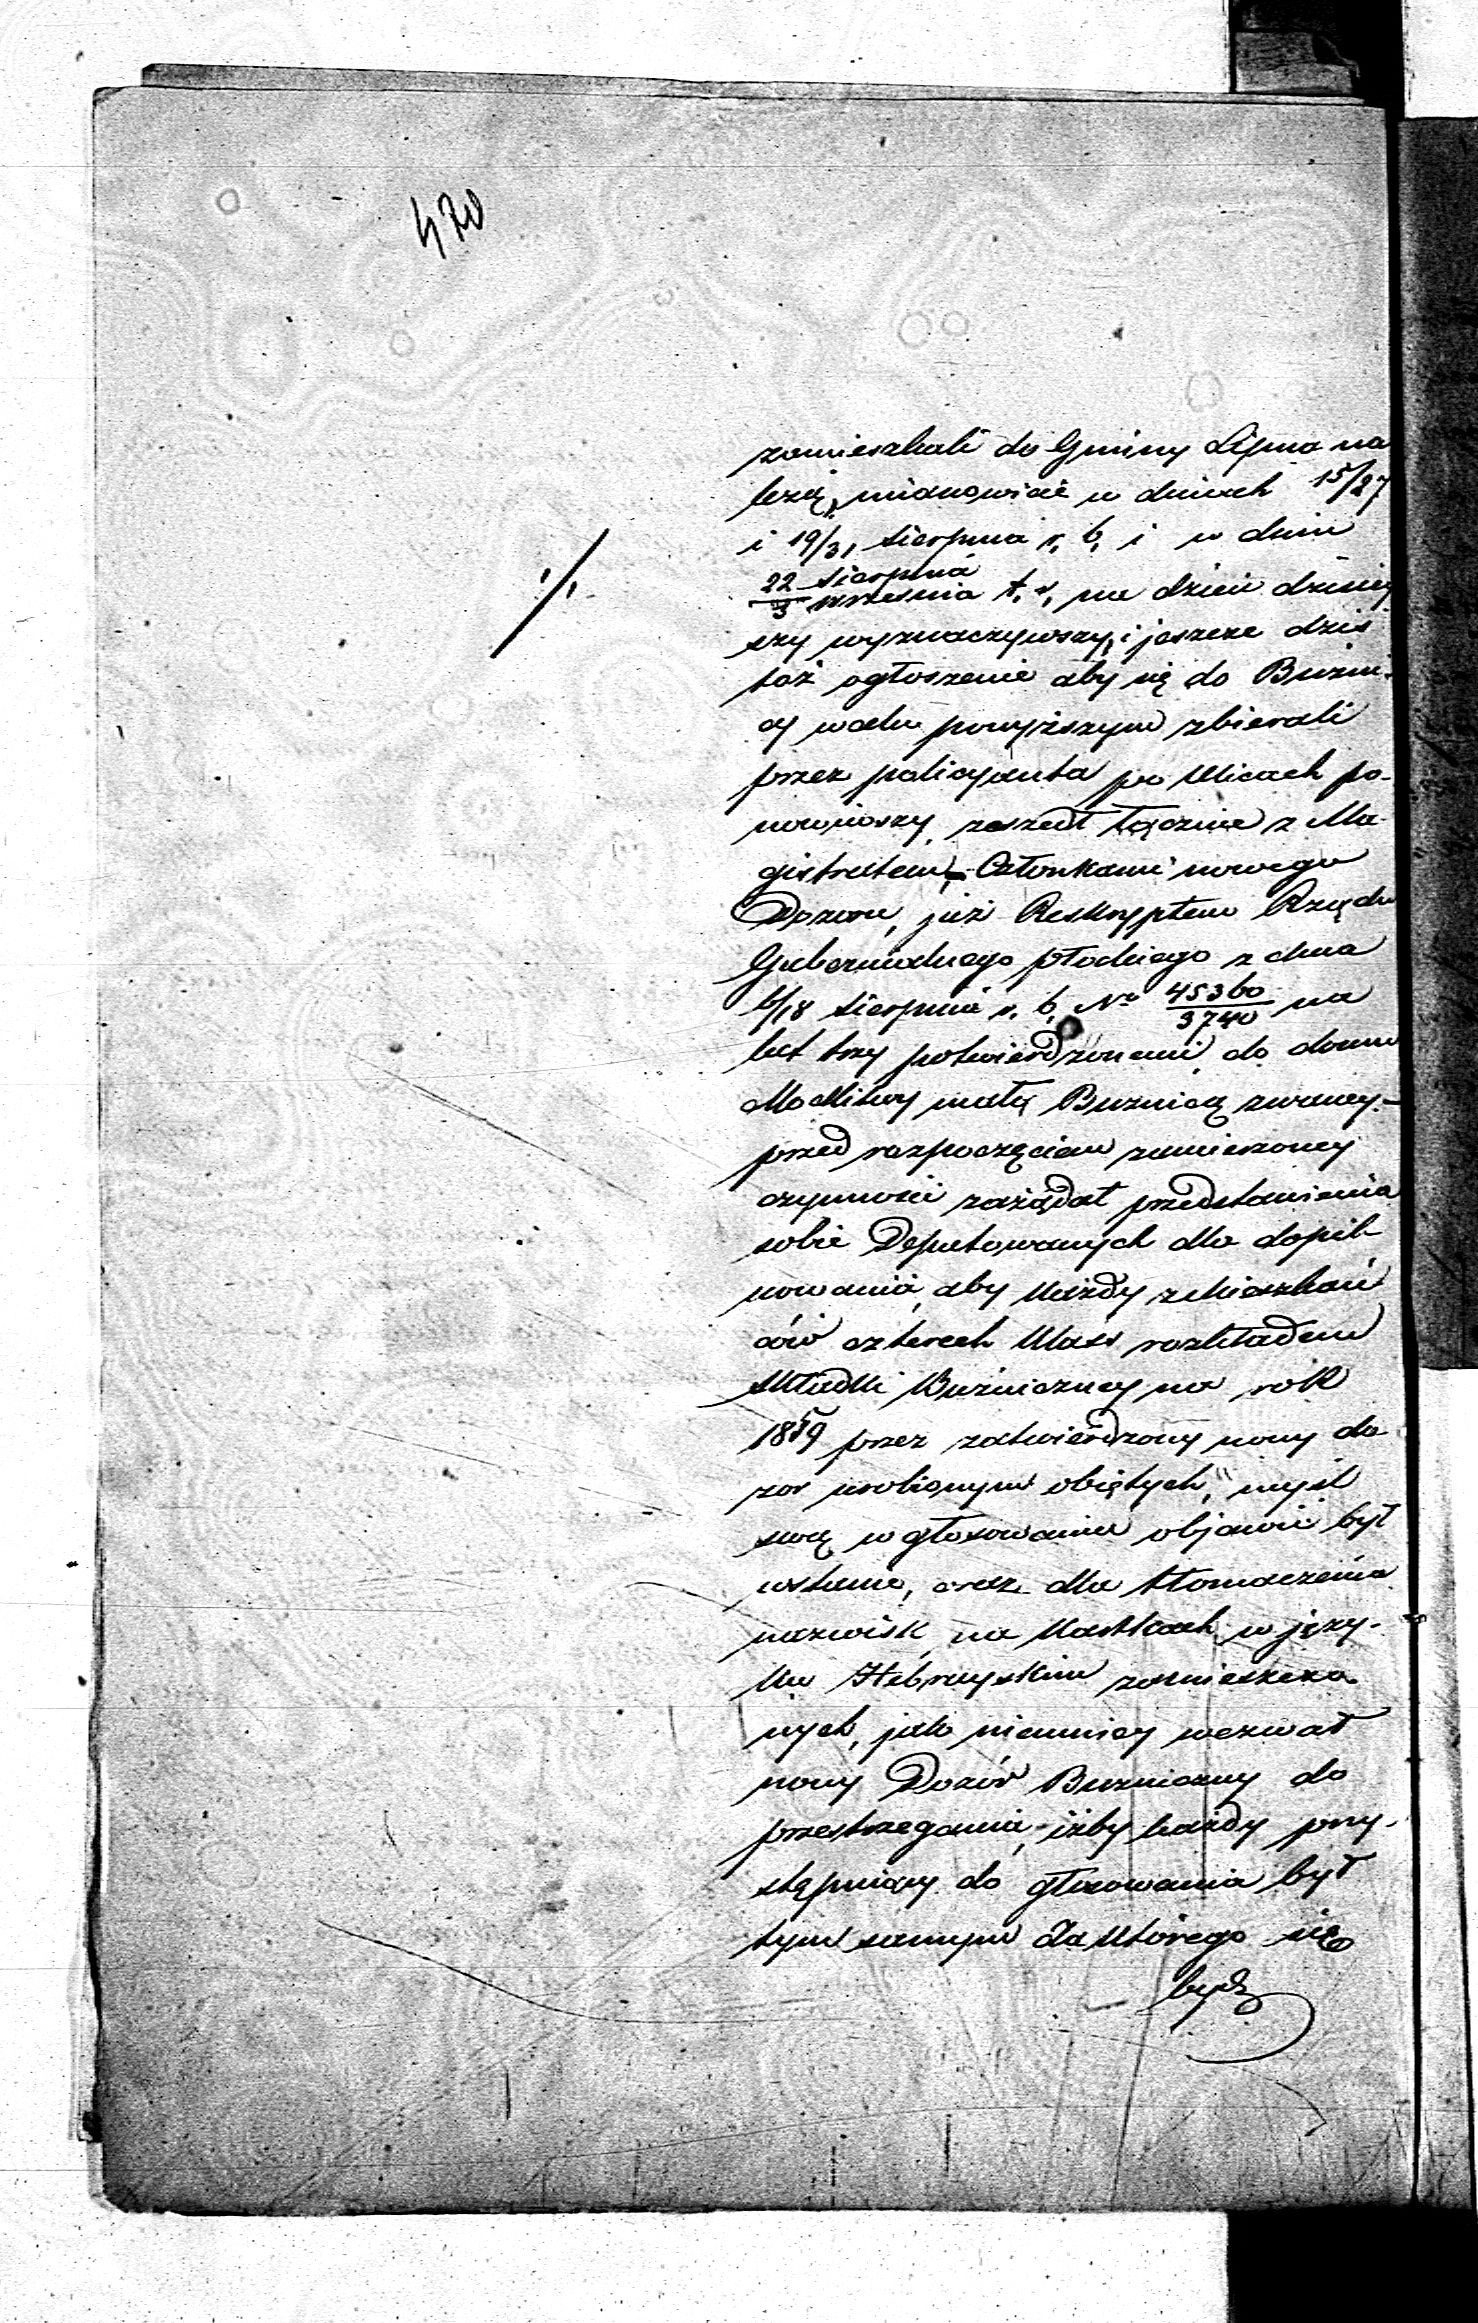 420
zamieszkali do Gminy Lipna na
leżą, mianowicie w dniach 15/27
i 19/31 Sierpnia r. b. i w dniu
22 Sierpnia
3 września t. r. na dzień dzisiey
szy wyznaczywszy, i jeszcze dziś
toż ogłoszenie aby się do Bużni-
cy w celu powyższym zbierali
przez policyanta po Ulicach po-
nowiwszy, zeszedł łącznie z Ma-
gistratem, Członkami nowego
Dozoru, już Reskryptem Rządu
Gubernialnego płockiego z dnia
6/18 Sierpnia r. b. No 45360/3740 na
lat trzy potwierdzonemi, do domu
Modlitwy małą Bużnicą zwaney.-
przed rozpoczęciem zamierzoney
czynności zażądał przedstawienia
sobie Deputowanych dla dopil-
nowania, aby każdy z Mieszkań
ców czterech klass rozkładem
składki Bużniczney na rok
1859 przez zatwierdzony nowy do
zor urobionym objętych, myśl
swą w głosowaniu objawić był
wstanie, oraz dla tłomaczenia
nazwisk na kartkach w języ-
ku Hebrayskim zamieszczo
nych, jako niemniey wezwał
nowy Dozór Bużniczny do
przestrzegania, iżby każdy przy-
stępuiący do głosowania był
tym samym za którego się
będz